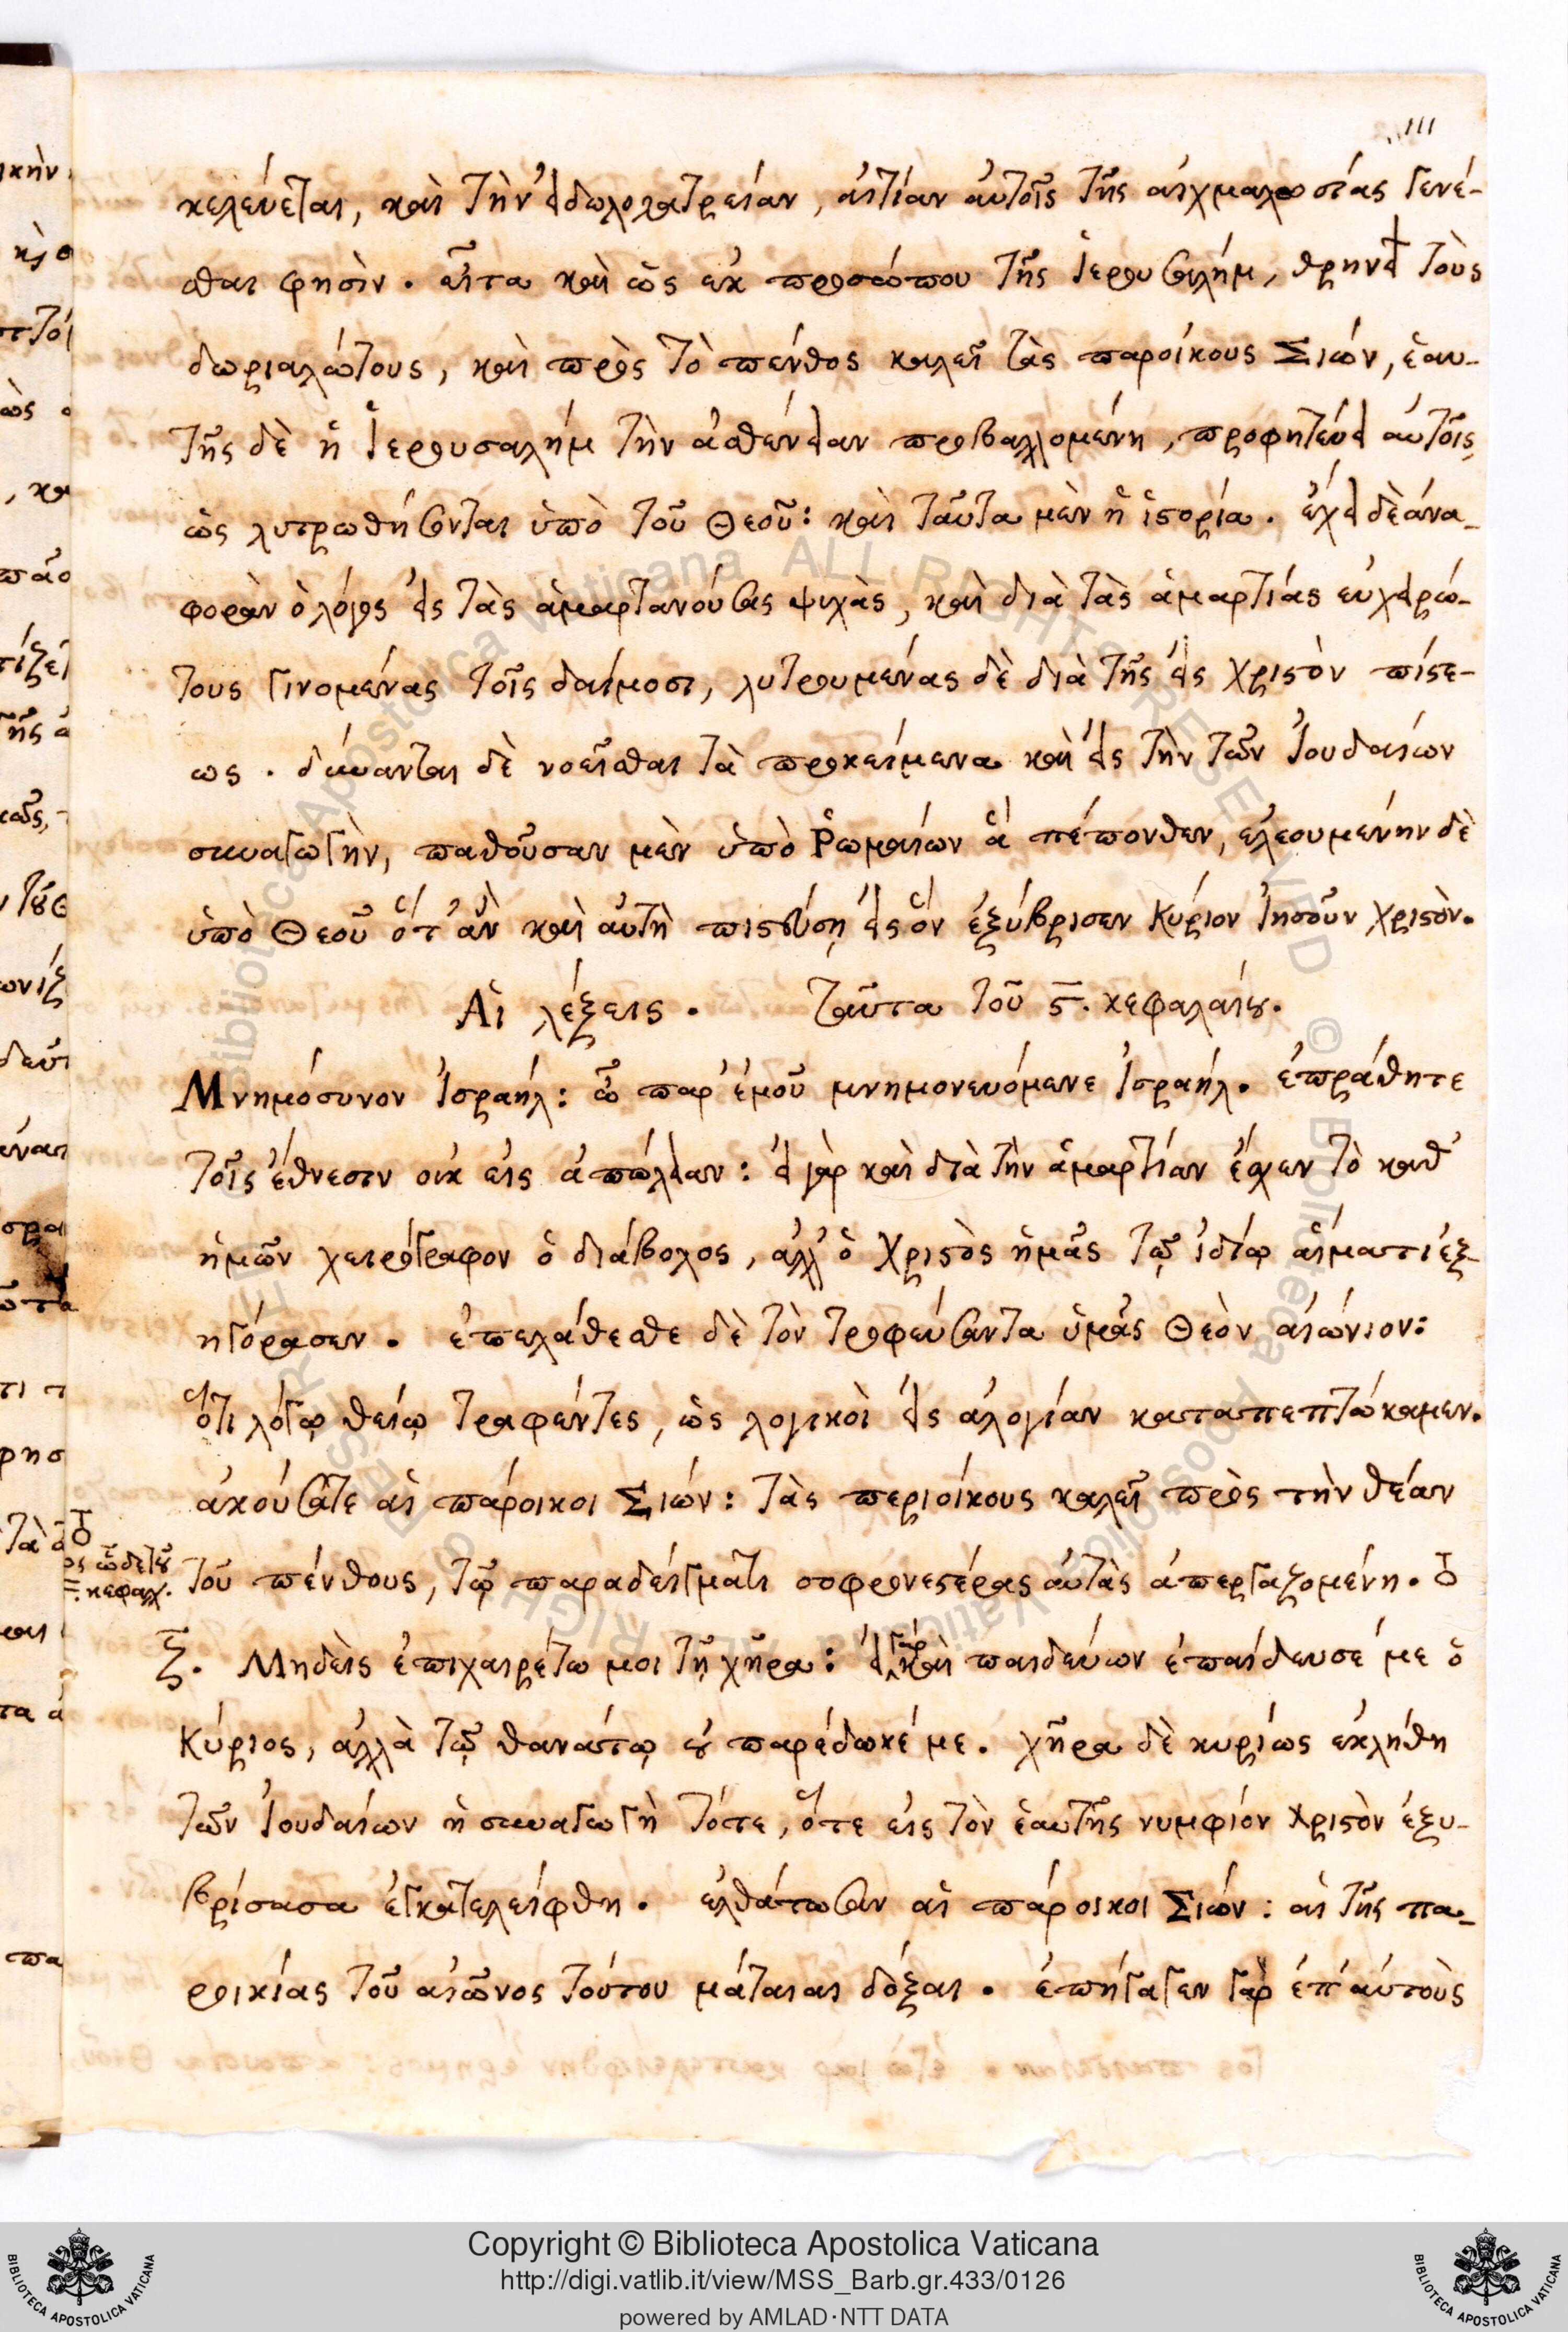 111
κελεύεται, καὶ τὴν εἰδωλολατρείαν, αἰτίαν αὐτοῖς τῆς αἰχμαλωσίας γενέ-
σθαι φησὶν. εἶτα καὶ ὡς ἐκ προσώπου τῆς Ἱερουσαλήμ, θρηνεῖ τοὺς
δωριαλώτους, καὶ πρὸς τὸ πένθος καλεῖ τὰς παροίκους Σιών, ἑαυ-
τῆς δὲ ἡ Ἱερουσαλήμ τὴν ἀσθένειαν προβαλλομένη, προφητεύει αὐτοῖς,
ὡς λυτρωθήσονται ὑπὸ τοῦ Θεοῦ: καὶ ταῦτα μὲν ἡ ἱστορία. ἔχει δὲ ἀνα-
φορὰν ὁ λόγος εἰς τὰς ἁμαρτανούσας ψυχὰς, καὶ διὰ τὰς ἁμαρτίας εὐχειρώ-
τους γινομένας τοῖς δαίμοσι, λυτρουμένας δὲ διὰ τῆς εἰς Χριστὸν πίστε-
ως. δύνανται δὲ νοεῖσθαι τὰ προκείμενα καὶ εἰς τὴν τῶν Ἰουδαίων
συναγωγὴν, παθοῦσαν μὲν ὑπὸ Ῥωμαίων ἃ πέπονθεν, ἐλεουμένην δὲ
ὑπὸ Θεοῦ ὅτ' ἂν καὶ αὐτὴ πιστεύσῃ εἰς ὃν ἐξύβρισεν Κύριον Ἰησοῦν Χριστὸν.
Αἱ λέξεις. Ταῦτα τοῦ ϛ. κεφαλαίου.
Μνημόσυνον Ἰσραήλ: ὦ παρ' ἐμοῦ μνημονευόμενε Ἰσραήλ. ἐπράθητε
τοῖς ἔθνεσιν οὐκ εἰς ἀπώλειαν: εἰ γὰρ καὶ διὰ τὴν ἁμαρτίαν ἔσχεν τὸ καθ'
ἡμῶν χειρόγραφον ὁ διάβολος, ἀλλ' ὁ Χριστὸς ἡμᾶς τῷ ἰδίῳ αἵματι ἐξ-
ηγόρασεν. ἐπελάθεσθε δὲ τὸν τροφεύσαντα ὑμᾶς Θεὸν αἰώνιον:
ὅτι λόγῳ θείῳ τραφέντες, ὡς λογικοὶ εἰς ἀλογίαν καταπεπτώκαμεν.
ἀκούσατε αἱ πάροικοι Σιών: τὰς περιοίκους καλεῖ πρὸς τὴν θέαν
τοῦ πένθους, τῷ παραδείγματι σοφρονεστέρας αὐτὰς ἀπεργαζομένη.
ζ. Μηδεὶς ἐπιχαιρέτω μοι τῇ χήρᾳ: εἰ γὰρ καὶ παιδεύων ἐπαίδευσέ με ὁ
Κύριος, ἀλλὰ τῷ θανάτῳ οὐ παρέδωκέ με. χήρα δὲ κυρίως ἐκλήθη
τῶν Ἰουδαίων ἡ συναγωγὴ τότε, ὅτε εἰς τὸν ἑαυτῆς νυμφίον Χριστὸν ἐξυ-
βρίσασα ἐγκατελείφθη. ἐλθάτωσαν αἱ πάροικοι Σιών: αἱ τῆς πα-
ροικίας τοῦ αἰῶνος τούτου μάταιαι δόξαι. ἐπήγαγεν γὰρ ἐπ' αὐτοὺς
Copyright © Biblioteca Apostolica Vaticana
http://digi.vatlib.it/view/MSS_Barb.gr.433/0126
powered by AMLAD·NTT DATA